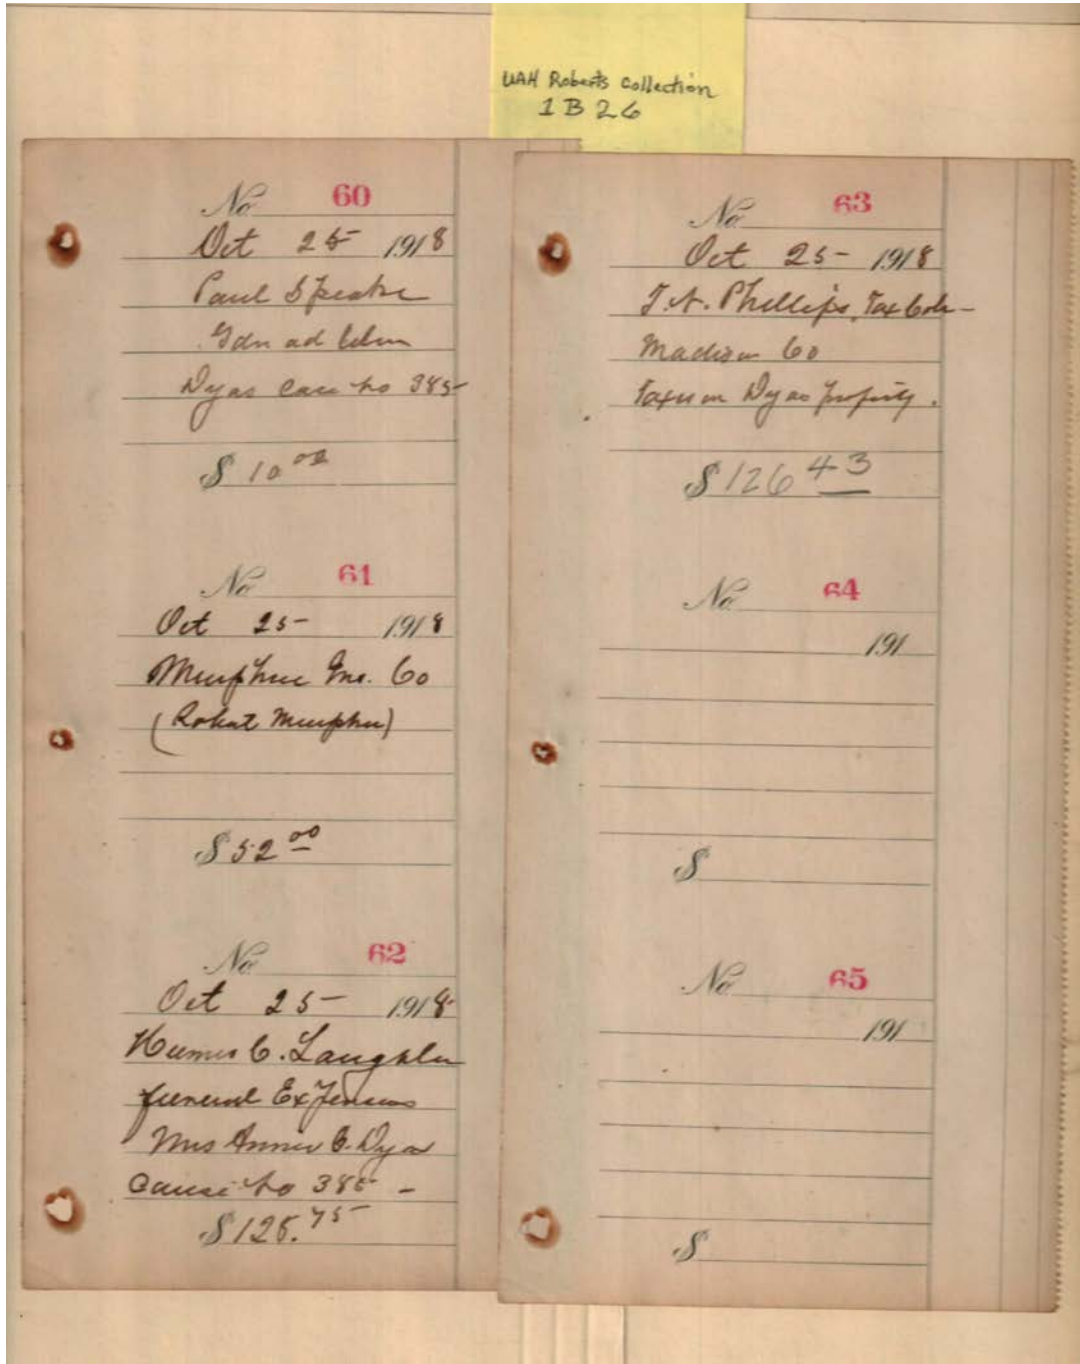 UAH Roberts Collection
1B26
No 60
Oct 25 1918
Paul Speake
Gdn ad litem
Dyas case no 385
$ 10 00
No 61
Oct 25 1918
Murphree Ins. Co
(Robert Murphree)
$ 52 00
No 62
Oct 25 1918
C. Laughlin
funeral Expenses
Mrs Annie C. Dyas
Cause No 385 -
$ 75
No 63
Oct 25 - 1918
Phillips, Tax Colr -
Madison Co
Taxes on Dyas property.
$ 126 43
No 64
191
$
No 65
191
$